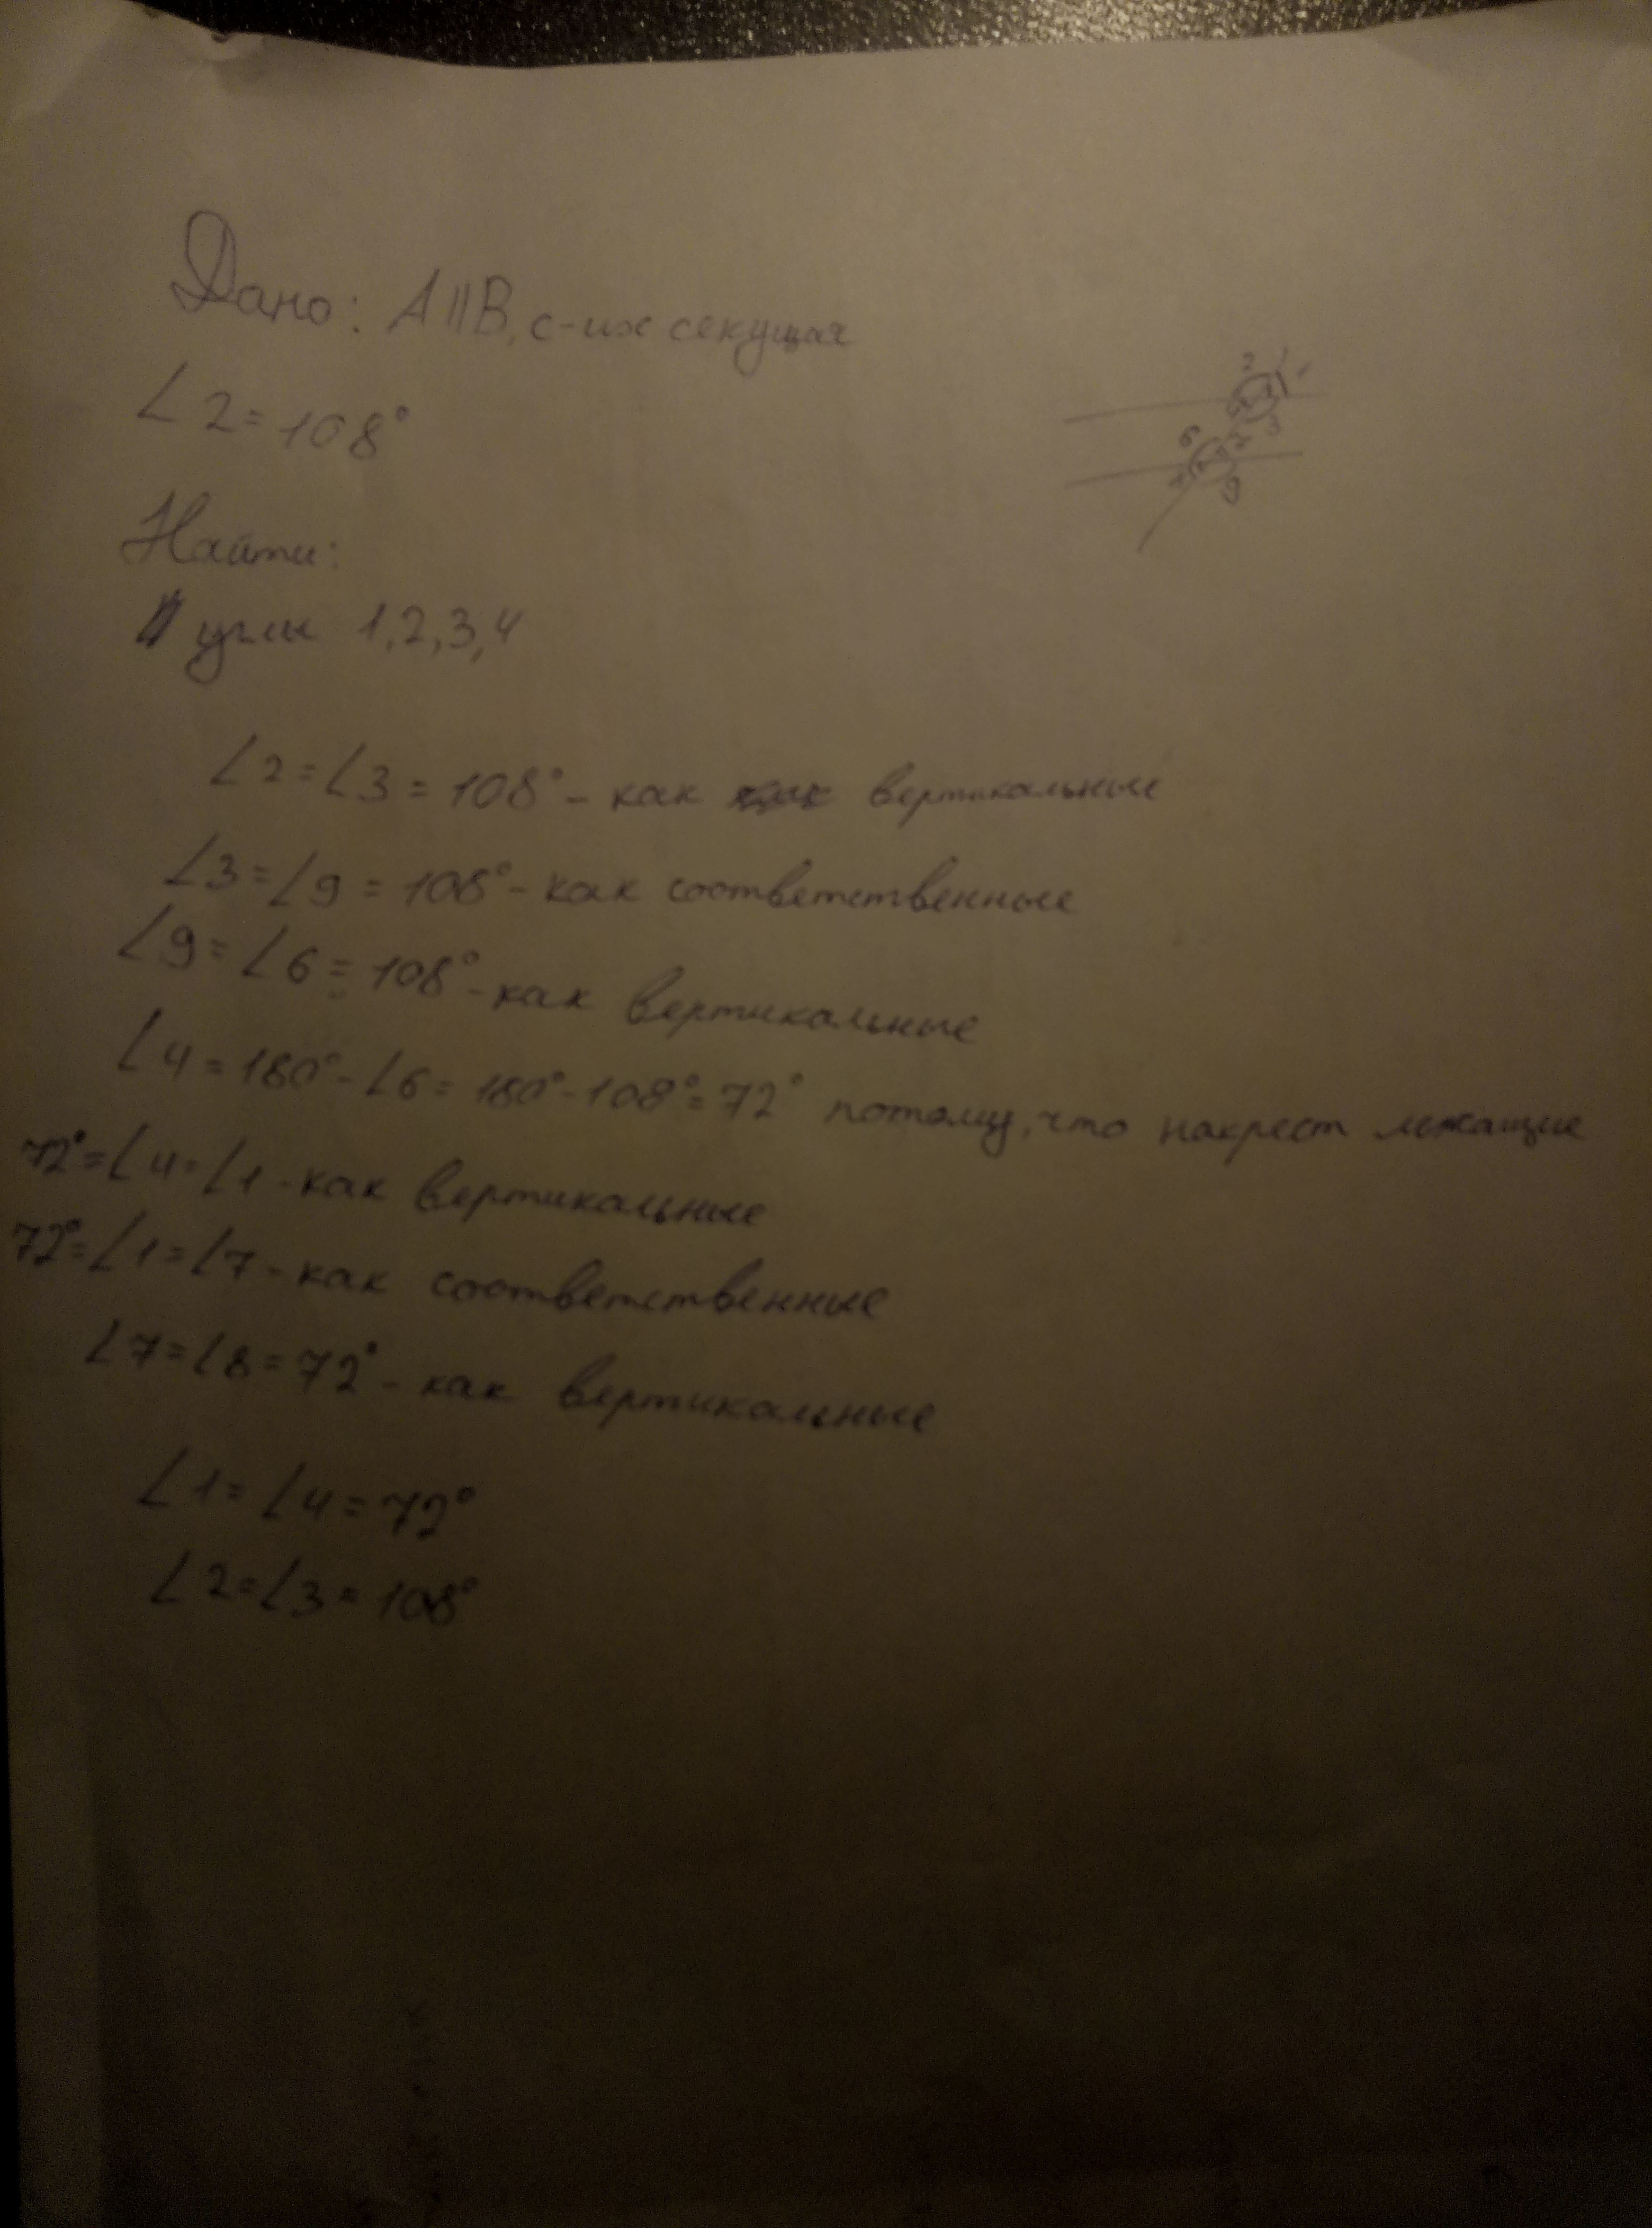 Дано: A||B, с-их секущая
∠2=108°
Найти:
углы 1,2,3,4
2
3
6
7
9
∠2=∠3=108°- как вертикальные
∠3=∠9=108°- как соответственные
∠9=∠6=108°- как вертикальные
∠4=180°-∠6=180°-108°=72° потому, что накрест лежащие
72°=∠4=∠1-как вертикальные
72°=∠1=∠7-как соответственные
∠7=∠8=72°- как вертикальные
∠1=∠4=72°
∠2=∠3=108°